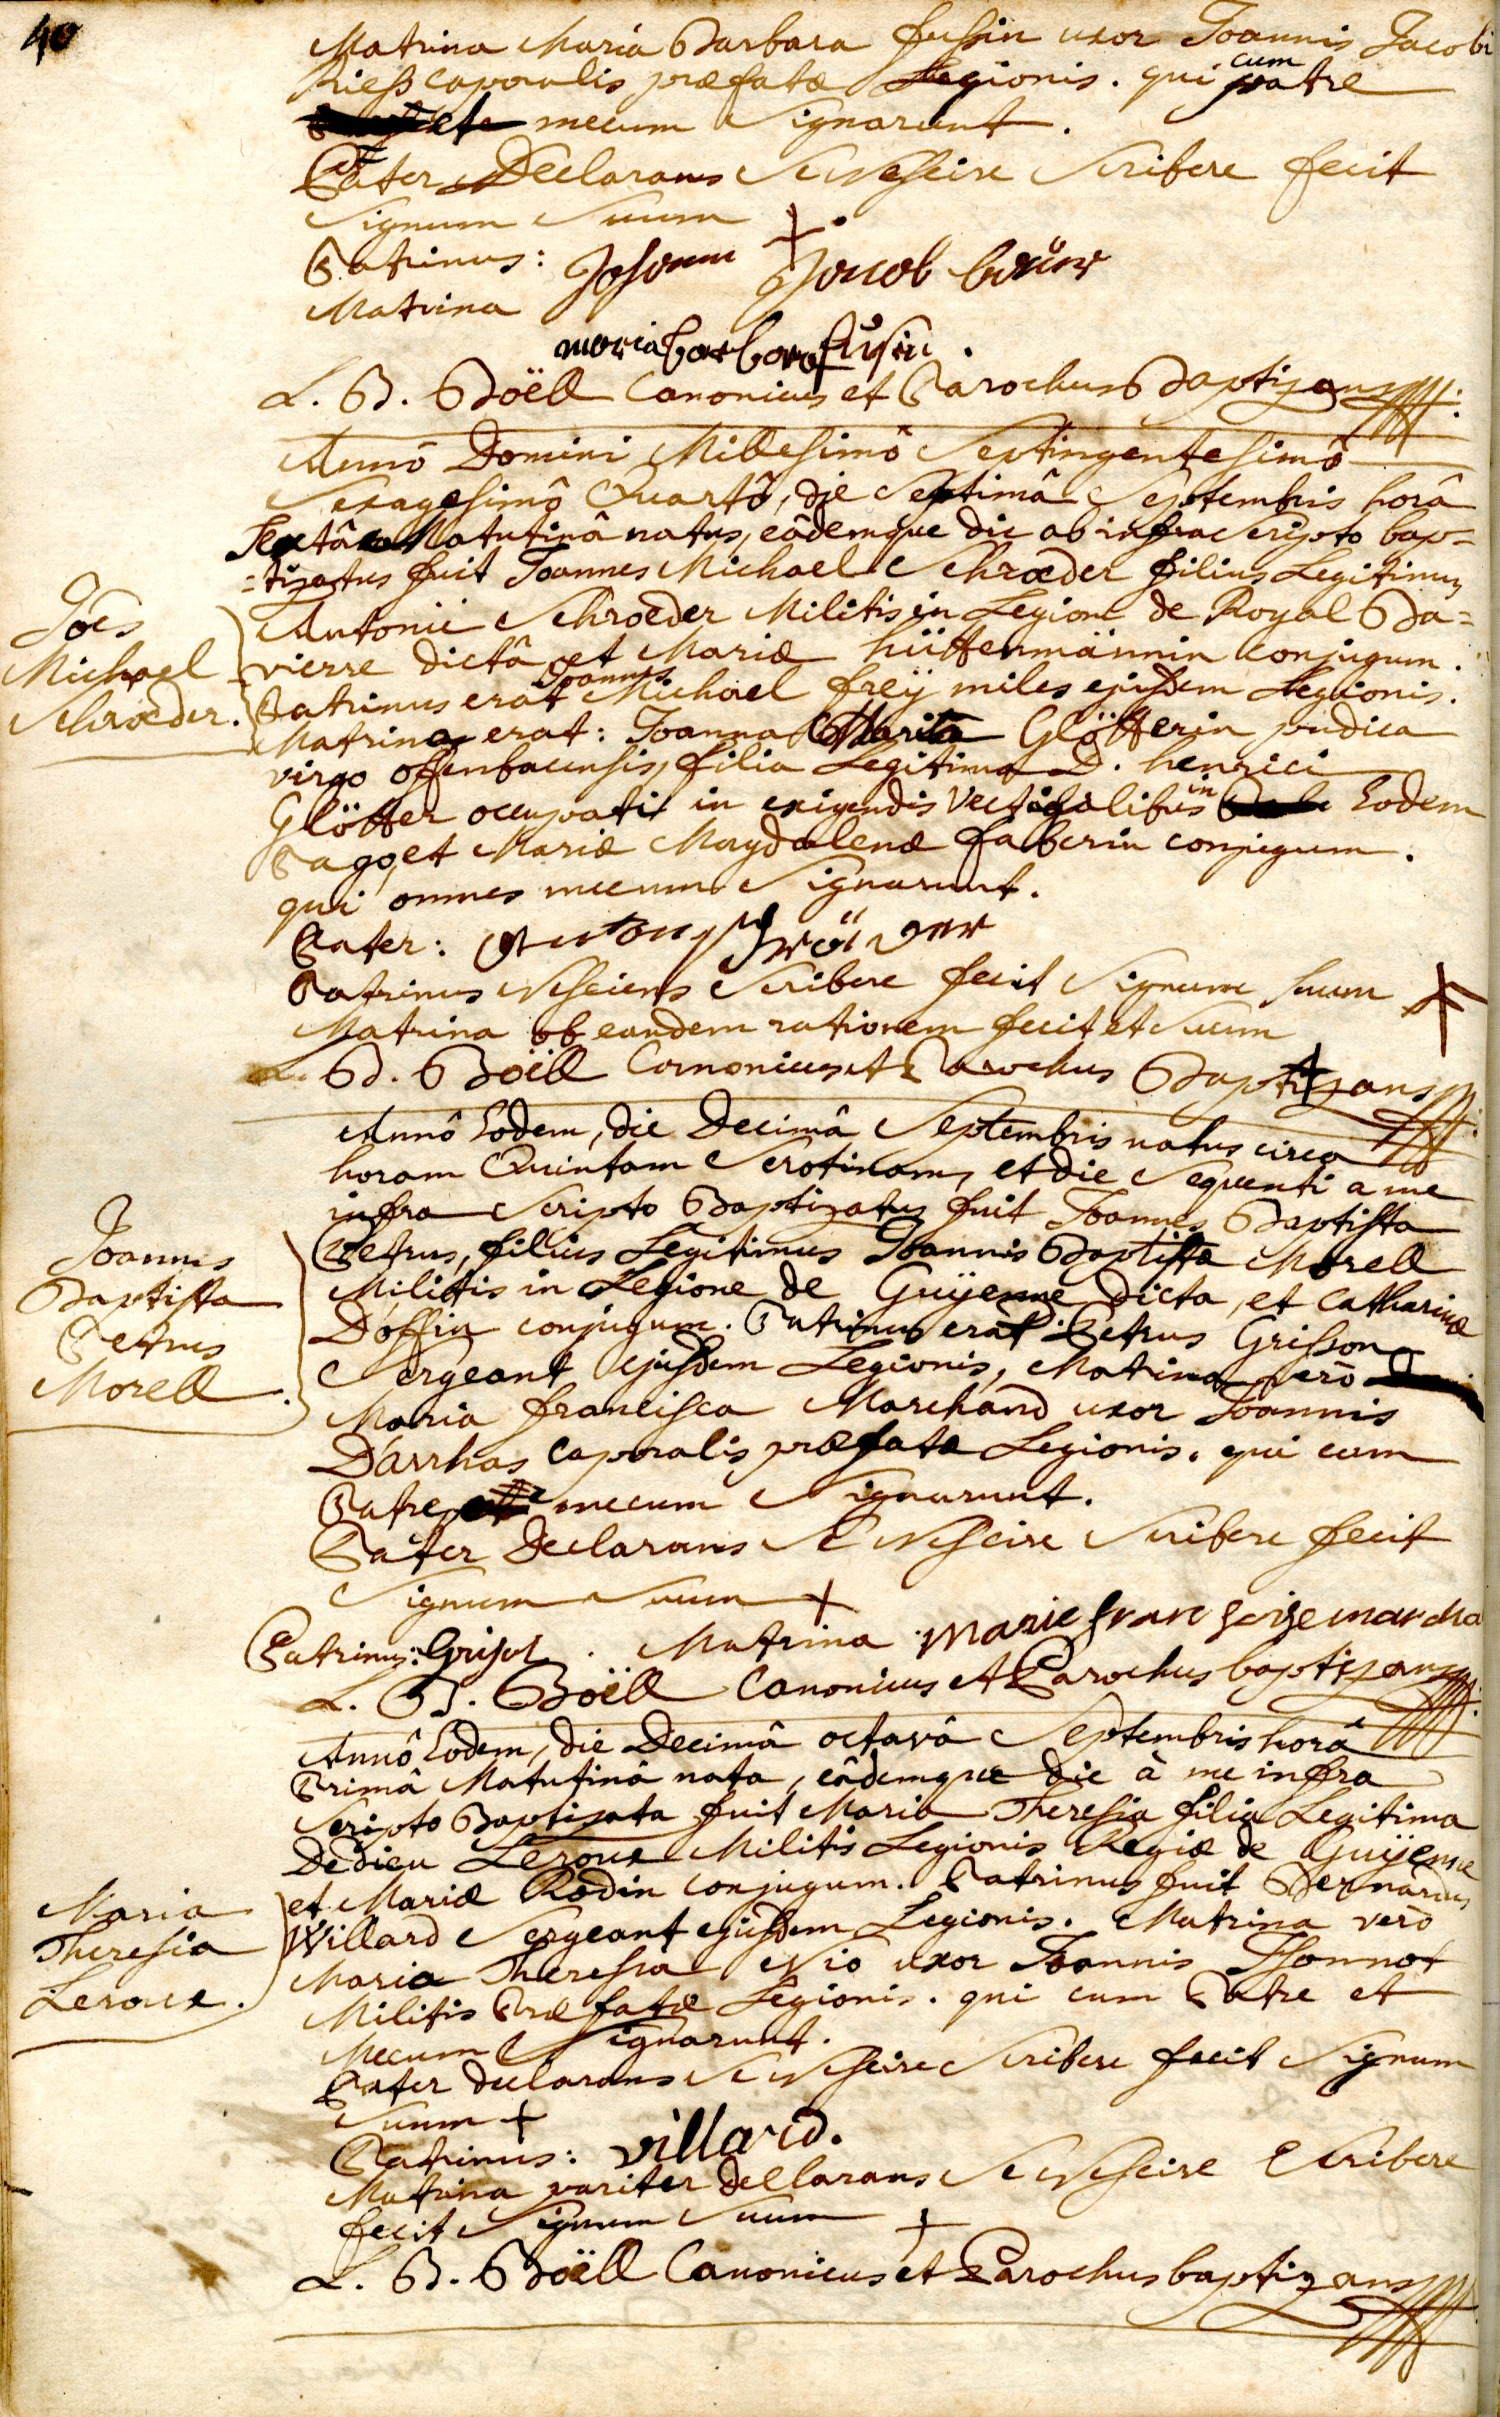 40
Matrina Maria Barbara fussin uxor Joannis Jacobi
Riess caporalis præfatæ Legionis. qui cum patre
mecum Signarunt.
Pater Declarans Se Nescire Scribere fecit
Signum Suum +
Patrinus: Johann Jacob
Matrina
maria barbara fusin.
L. B. Böell Canonicus et Parochus Baptizans
Annô Domini Millesimô Septingentesimô
Sexagesimô Quartô, die Septimâ Septembris horâ
Sextâ Matutinâ natus, eâdemque die ab infra Scripto bap=
=tizatus fuit Joannes Michael Schrœder filius Legitimus
Antonii Schrœder Militis in Legione de Royal Ba=
vierre dictâ et Mariæ hüttenmännin conjugum.
Patrinus erat Joannes Michael freÿ miles ejusdem Legionis.
Matrina erat: Joanna Glötterin pudica
virgo offenbacensis, filia Legitima D. henrici
Glötter occupati in exigendis Vectigalibus in Eodem
Pago, et Mariæ Magdalenæ faberin conjugum.
qui omnes mecum Signarunt.
Joēs
Michael
Schrœder.
Pater: Antony Schröder
Patrinus Nesciens Scribere fecit Signum Suum +
Matrina ob eandem rationem fecit et Suum +
L. B. Böell Canonicus et Parochus Baptizans
Annô Eodem, die Decimâ Septembris natus circa
horam Quintam Serotinam, et die Sequenti a me
infra Scripto Baptizatus fuit Joannes Baptista
Petrus, filius Legitimus Joannis Baptistæ Morell
Militis in Legione de Guÿenne dicta, et Catharinæ
Doffin conjugum. Patrinus erat Petrus Grisson
Sergeant Ejusdem Legionis, Matrina verò
Maria francisca Marchand uxor Joannis
D'arrhas Caporalis præfatæ Legionis. qui cum
Patre mecum Signarunt.
Joannes
Baptista
Petrus
Morell.
Pater Declarans Se Nescire Scribere fecit
Signum Suum +
Patrinus: Grisot. Matrina Marie
L. B. Böell Canonicus et Parochus baptizans
Annô Eodem, die Decimâ octavâ Septembris horâ
Primâ Matutinâ nata, eâdemque die à me infra
Scripto Baptizata fuit Maria Theresia filia Legitima
Dedieu Leroux Militis Legionis Regiæ de Guÿenne
et Mariæ Rodin conjugum. Patrinus fuit Bernardus
Willard Sergeant ejusdem Legionis. Matrina verò
Maria Theresia Nio uxor Joannis
Militis Præfatæ Legionis. qui cum Patre et
Mecum Signarunt.
Maria
Theresia
Leroux.
Pater declarans Se Nescire Scribere fecit Signum
Suum +
Patrinus: villard.
Matrina pariter declarans Se Nescire Scribere
fecit Signum Suum +
L. B. Böell Canonicus et Parochus baptizans